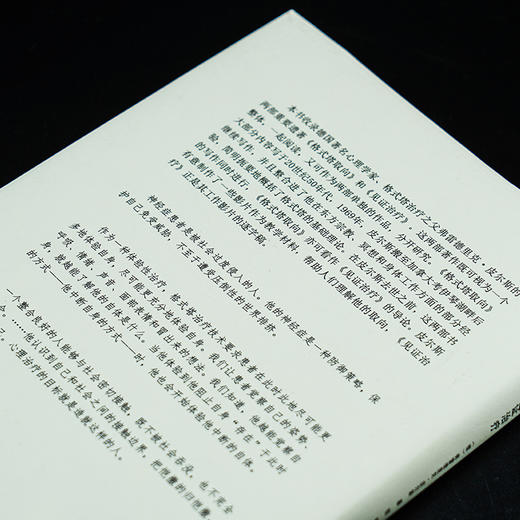 本书收录德国著名心理学家、格式塔治疗之父弗雷德里克·皮尔斯的
两部重要遗著《格式塔取向》和《见证治疗》。这两部著作既可视为一个
整体，一起阅读，又可作为两部单独的作品，分开研究。《格式塔取向》
大部分内容写于20世纪50年代，1969年，皮尔斯搬至加拿大考伊琴湖畔后
继续写作，并且整合进了他在东方宗教、冥想和身体工作方面的部分经
验，简明扼要地概括了格式塔的基础理论。在皮尔斯去世之前，这两部书
的写作同时进行。《格式塔取向》亦可看作《见证治疗》的导论。皮尔斯
有意制作了一些影片作为教学材料，帮助人们理解他的取向，《见证治
疗》正是其工作影片的逐字稿。
神经症患者是被社会过度侵入的人。他的神经症是一种防御策略，保
护自己免受威胁，不至于遭受压倒性的世界排挤。
作为一种体验性治疗，格式塔治疗技术要求患者在此时此地尽可能更
多地体验自身，尽可能更充分地体验自身。我们让患者觉察自己的姿势、
呼吸、情绪、声音、面部表情和冒出来的想法。
身，就越能了解他的自体是什么。当他体验到他阻止自身“存在”于此时
的方式——他中断自体的方式——时，他也会开始体验他中断的自体。
一个整合良好的人能够与社会密切接触，既不被社会吞没，也不完全
他认识到自己和社会之间的接触边界，把恺撒的归恺撒，
心理治疗的目标就是造就这样的人。